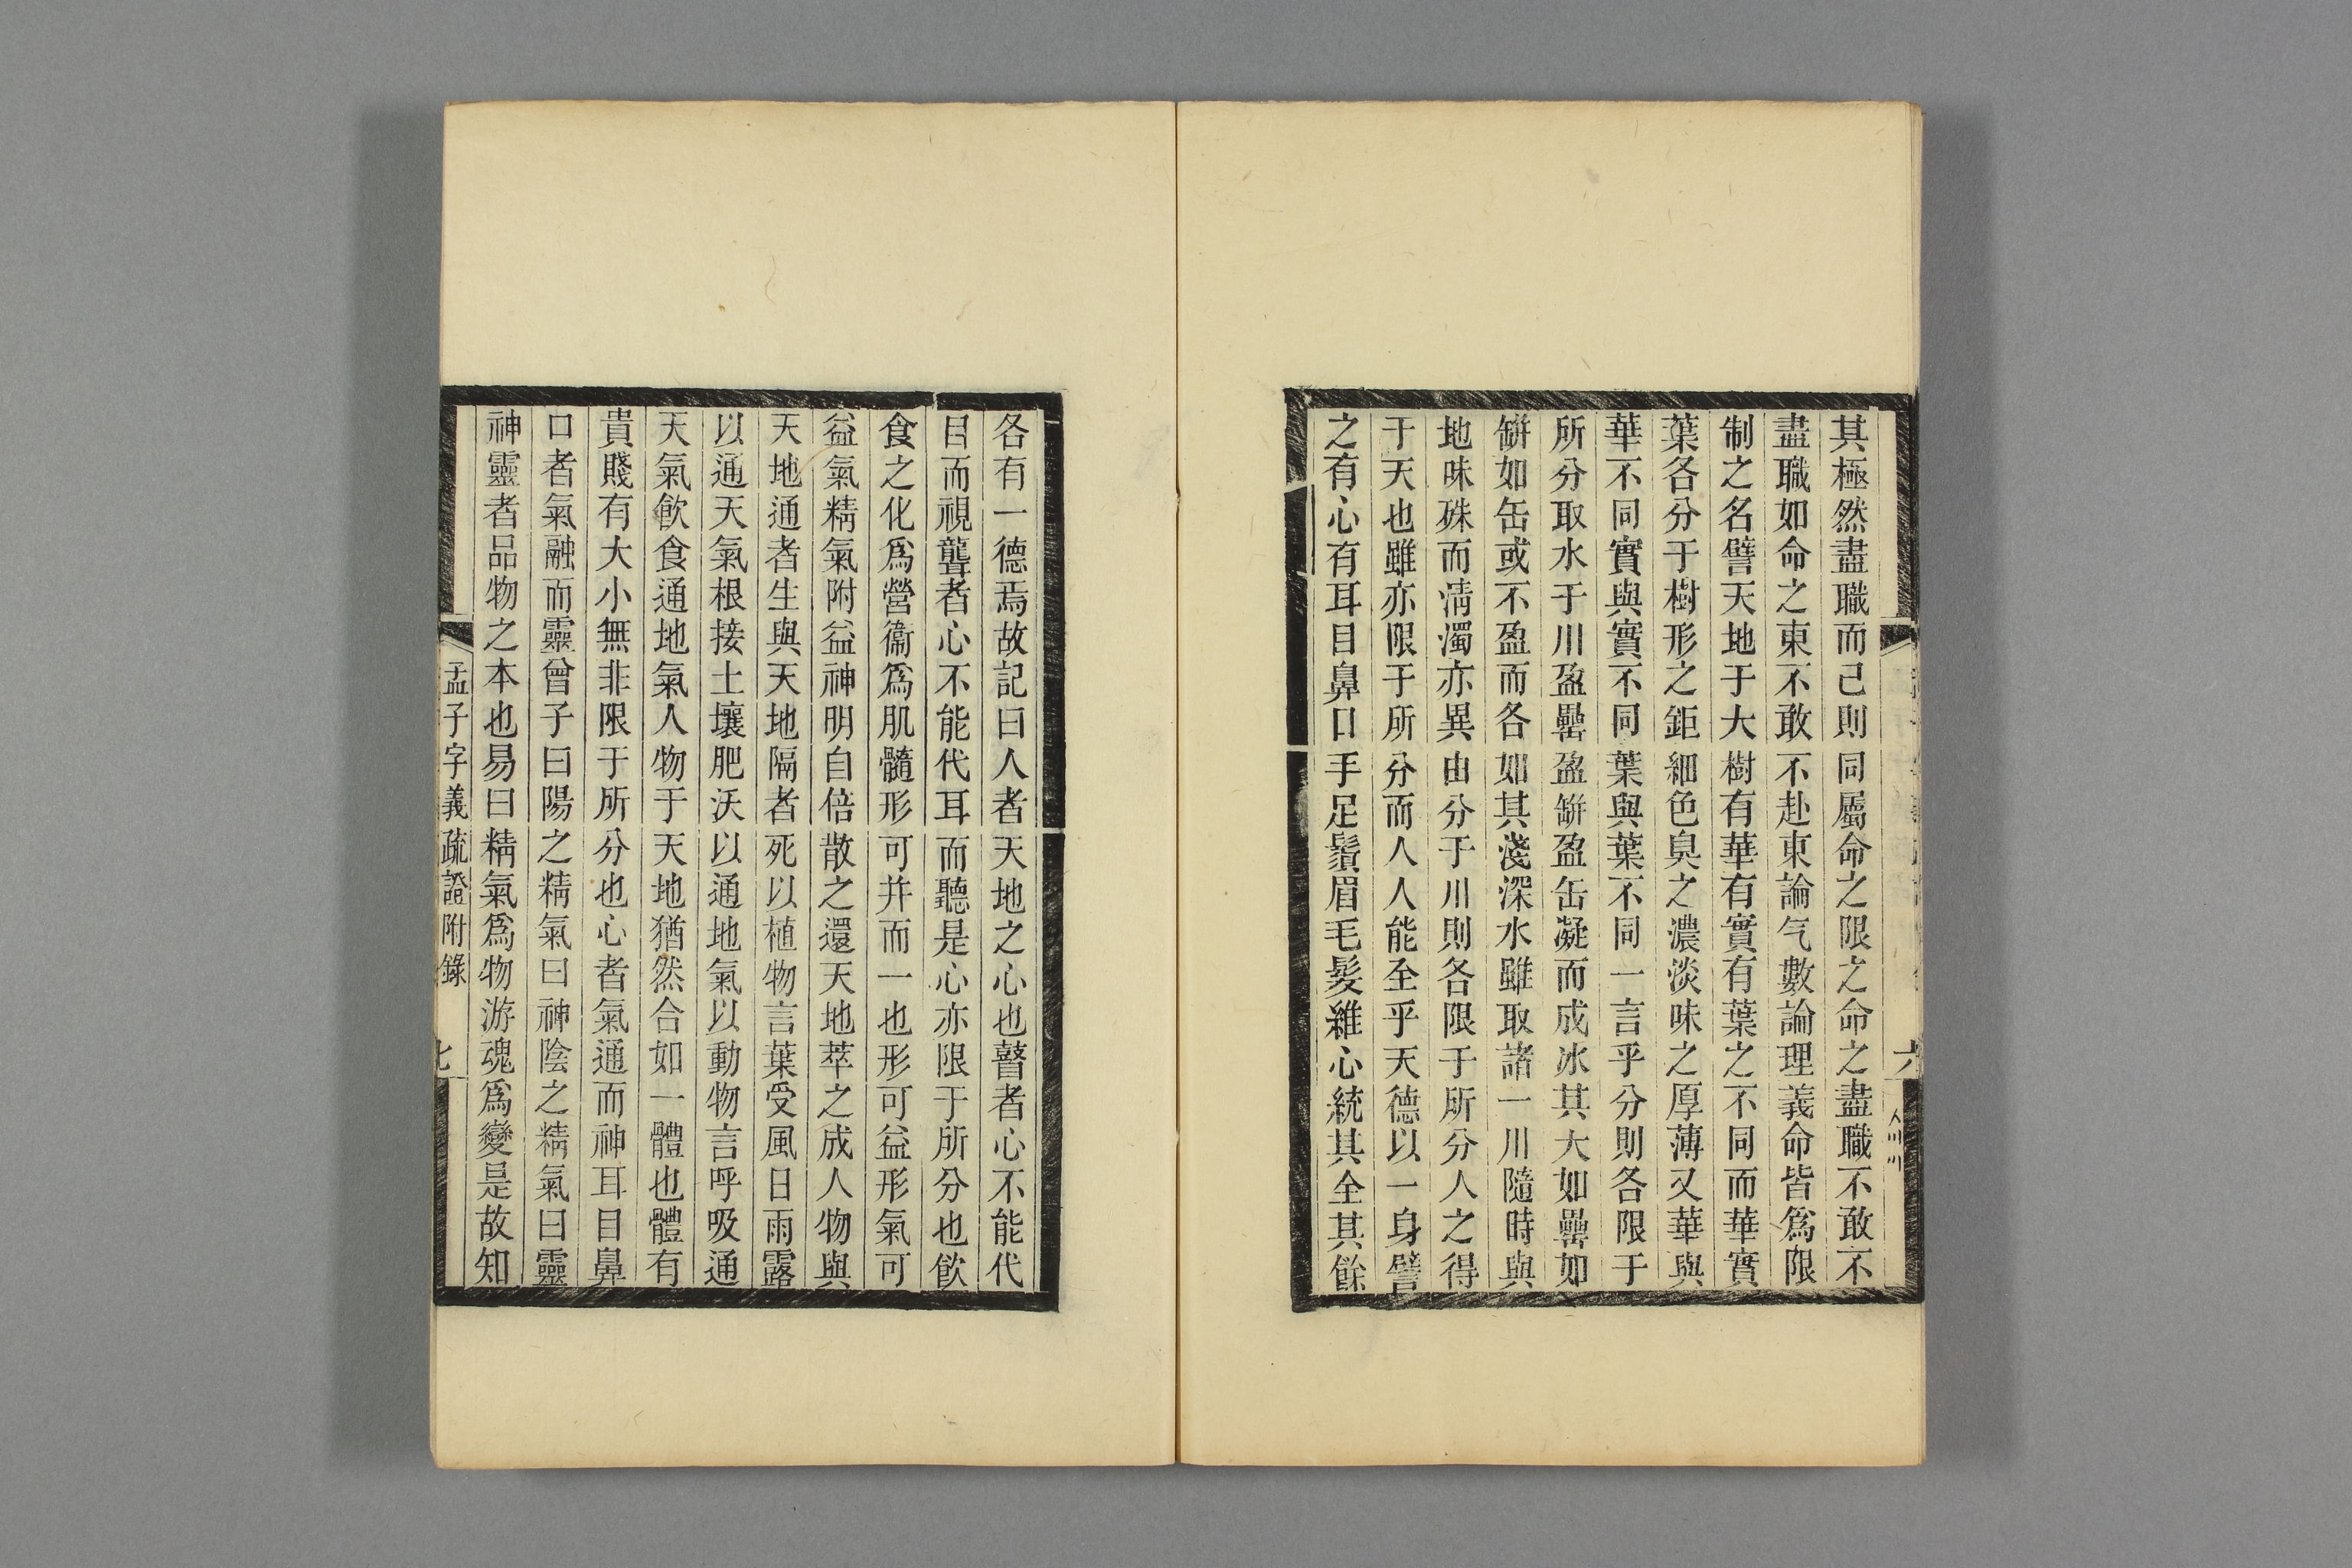 其極然盡職而已則同屬命之限之命之盡職不敢不
盡職如命之東不敢不赴東論气數論理義命皆爲限
制之名譬天地于大樹有華有實有葉之不同而華實
葉各分于樹形之鉅細色臭之濃淡味之厚薄又華與
華不同實與實不同葉與葉不同一言乎分則各限于
所分取水于川盈罍盈缾盈缶凝而成冰其大如罍如
缾如缶或不盈而各如其淺深水雖取諸一川隨時與
地味殊而清濁亦異由分于川則各限于所分人之得
于天也雖亦限于所分而人人能全乎天德以一身譬
之有心有耳目鼻口手足鬚眉毛髮維心統其全其餘
六
各有一德焉故記曰人者天地之心也瞽者心不能代
目而視聾者心不能代耳而聽是心亦限于所分也飲
食之化爲營衞爲肌髓形可并而一也形可益形氣可
益氣精氣附益神明自倍散之還天地萃之成人物與
天地通者生與天地隔者死以植物言葉受風日雨露
以通天氣根接土壤肥沃以通地氣以動物言呼吸通
天氣飲食通地氣人物于天地猶然合如一體也體有
貴賤有大小無非限于所分也心者氣通而神耳目鼻
口者氣融而靈曾子曰陽之精氣曰神陰之精氣曰靈
神靈者品物之本也易曰精氣爲物游魂爲變是故知
孟子字義疏證附錄
七